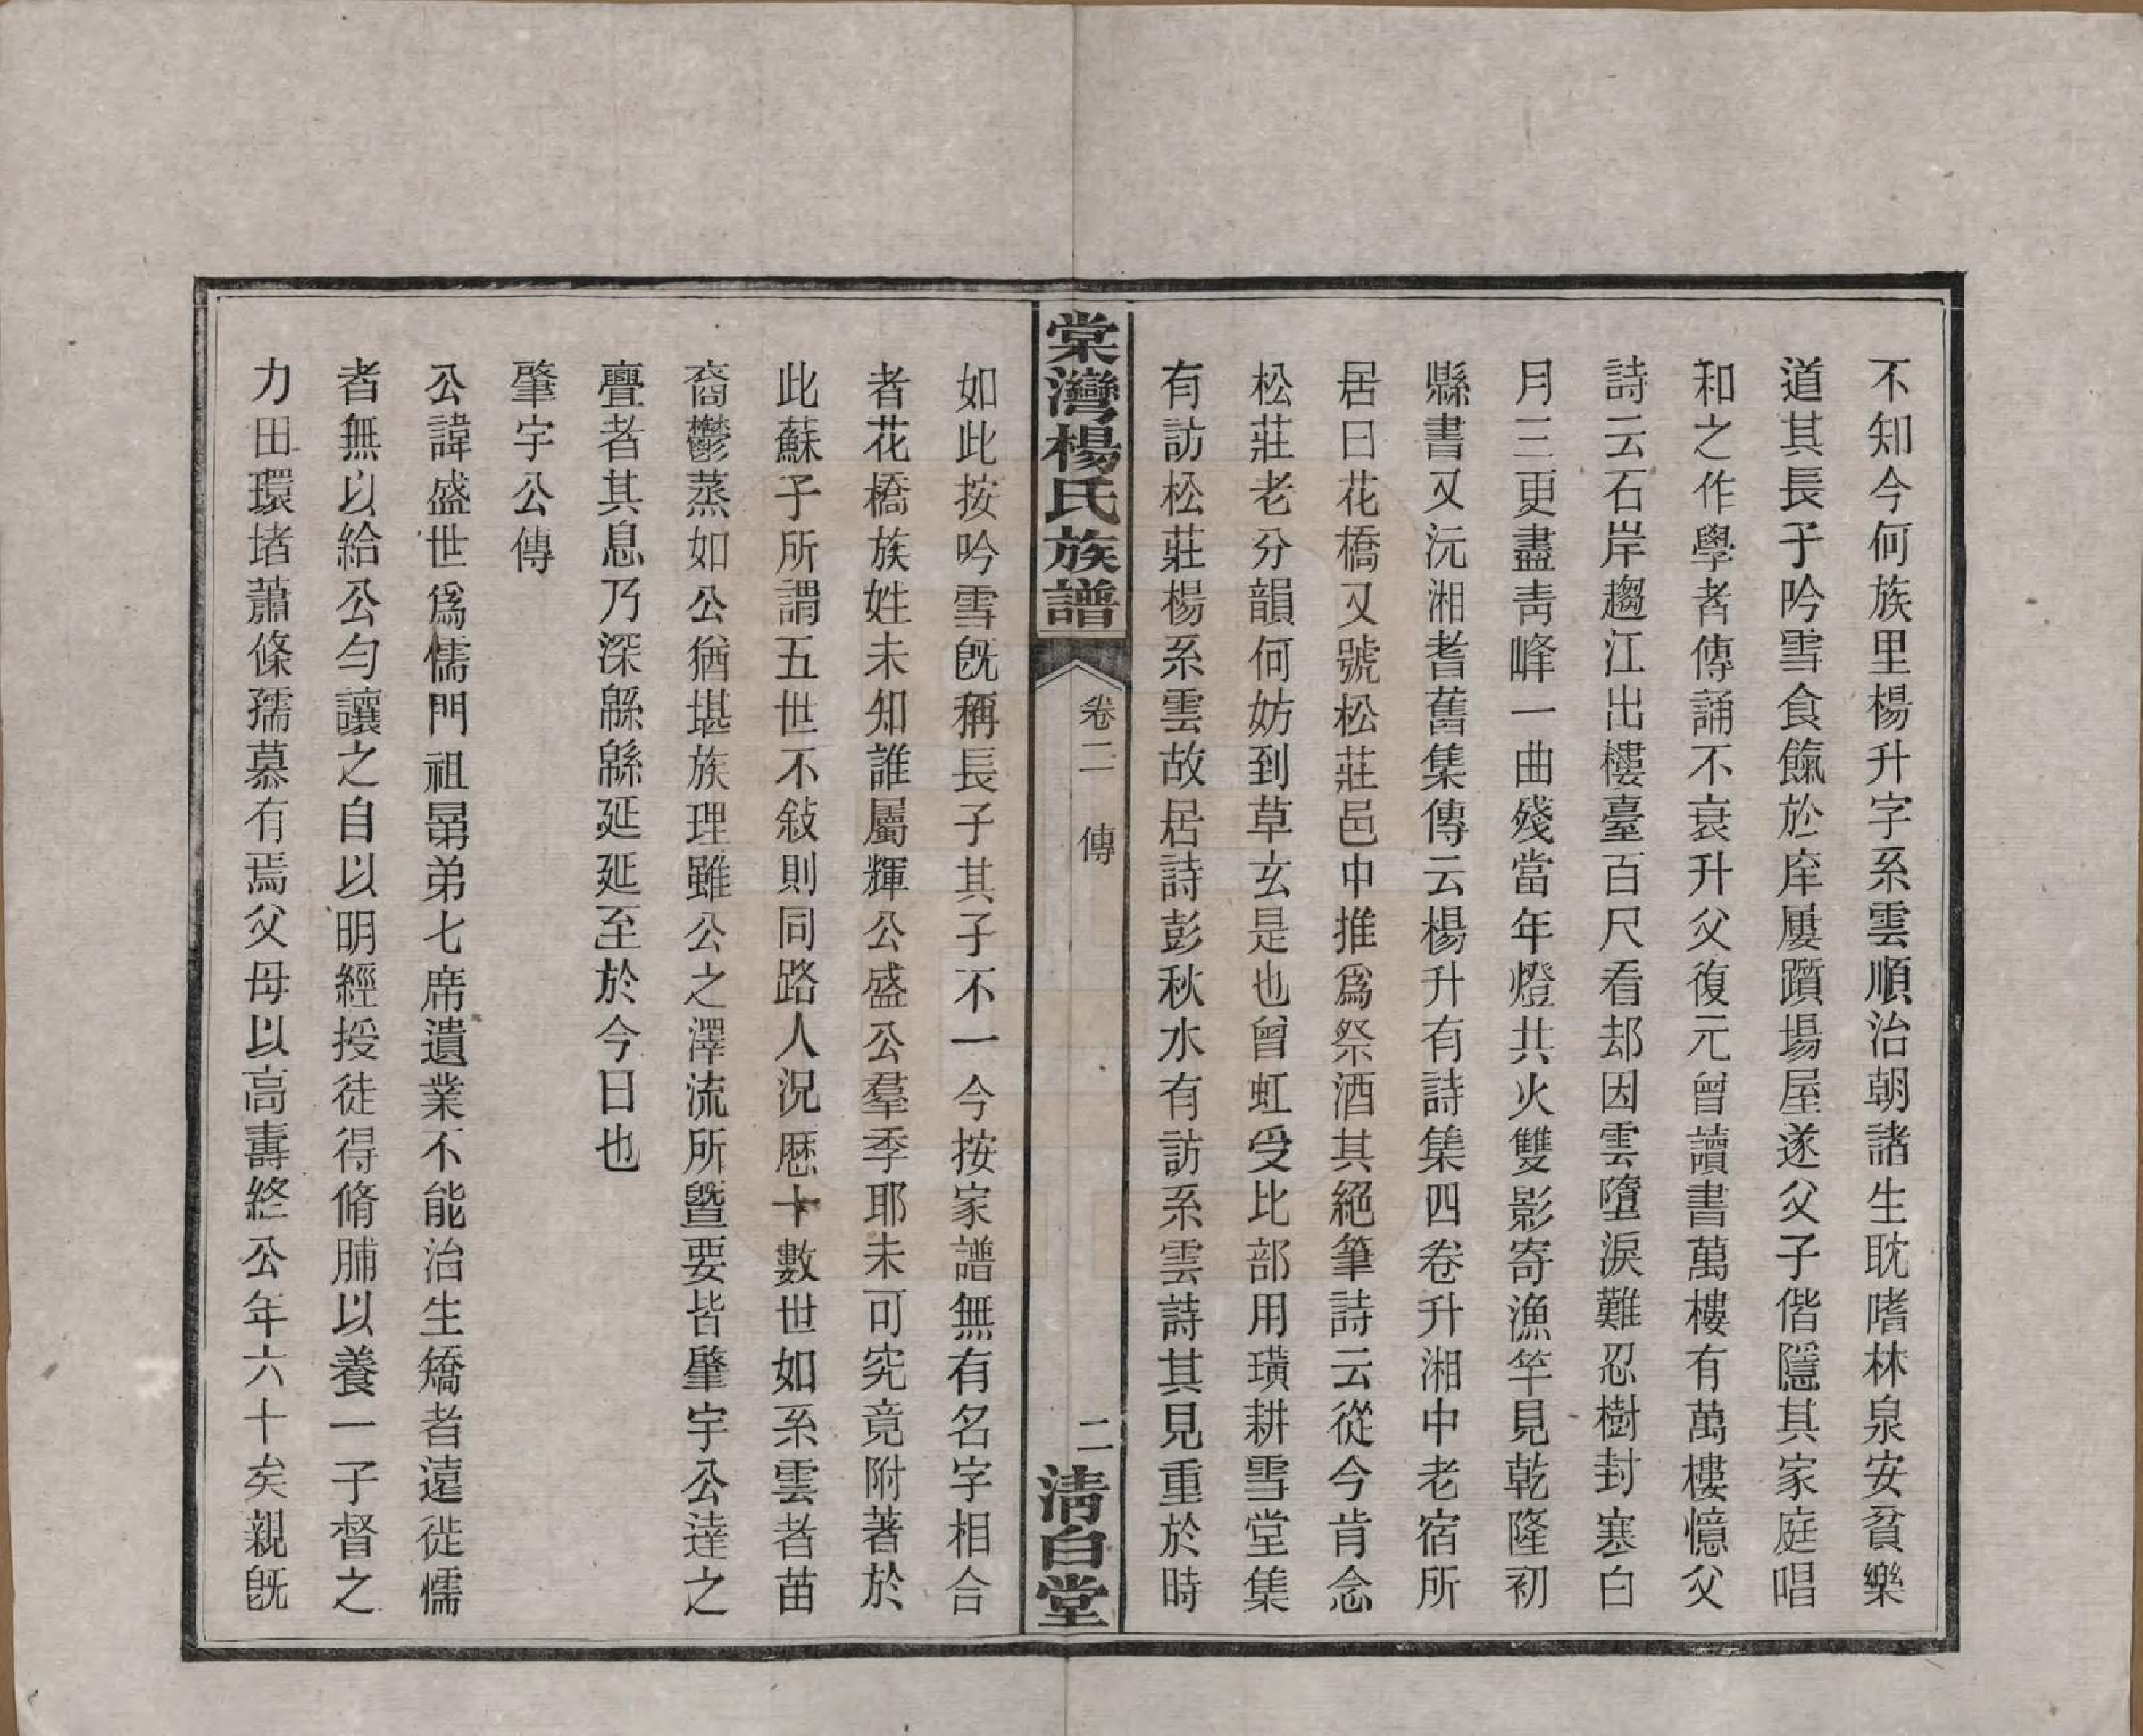 不知今何族里楊升字系雲順治朝諸生耽嗜林泉安貧樂
道其長子吟雪食餼於庠屢躓場屋遂父子偕隱其家庭唱
和之作學者傳誦不衰升父復元曾讀書萬樓有萬樓憶父
詩云石岸趨江出樓臺百尺看却因雲墮淚難忍樹封塞白
月三更盡靑峰一曲殘當年燈共火雙影寄漁竿見乾隆初
縣書又沅湘耆舊集傳云楊升有詩集四卷升湘中老宿所
居曰花橋又號松莊邑中推爲祭酒其絕筆詩云從今肯念
松莊老分韻何妨到草玄是也曾虹受比部用璜耕雪堂集
有訪松莊楊系雲故居詩彭秋水有訪系雲詩其見重於時
棠灣楊氏族譜
卷二 傳
二
淸白堂
如此按吟雪旣稱長子其子不一今按家譜無有名字相合
者花橋族姓未知誰屬輝公盛公羣季耶未可究竟附著於
此蘇子所謂五世不敍則同路人況歷十數世如系雲者苗
裔鬱蒸如公猶堪族理雖公之澤流所曁要皆肇宇公達之
亹者其息乃深緜緜延延至於今日也
肇宇公傳
公諱盛世爲儒門祖晜弟七席遺業不能治生矯者遠徙懦
者無以給公勻讓之自以明經授徒得脩脯以養一子督之
力田環堵蕭條孺慕有焉父母以高壽終公年六十矣親旣